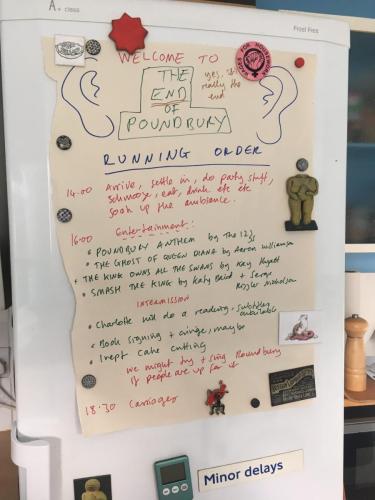 A+ class
Frost Free
WELCOME TO
THE
END
OF
POUNDBURY
yes, it's
really the
end
WAGES FOR HOUSEWORK
RUNNING ORDER
14.00 Arrive, settle in, do party stuff,
schmooze, eat, drink etc etc
soak up the ambience.
16.00 Entertainment:
• POUNDBURY ANTHEM by The
• THE GHOST OF QUEEN DIANA by Aaron Williamson
• THE KING OWNS ALL THE SWANS by Kay Hyatt
• SMASH THE KING by Katy Baird + Serge
Nicholson
INTERMISSION
• Charlotte will do a reading - subtitles
available
• Book signing + cringe, maybe
• Inept cake cutting
we might try + sing Poundbury
if people are up for it
18.30 Carriages
Minor delays